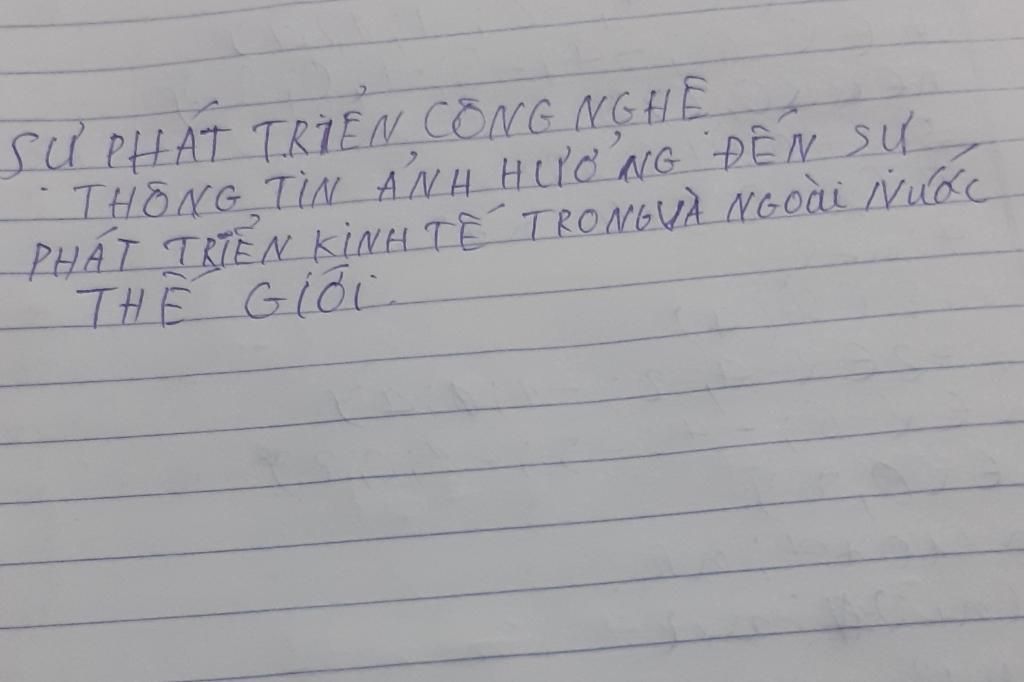 SỰ PHÁT TRIỂN CÔNG NGHỆ
THÔNG TIN ẢNH HƯỞNG ĐẾN SỰ
PHÁT TRIỂN KINH TẾ TRONG VÀ NGOÀI NƯỚC
THẾ GIỚI.